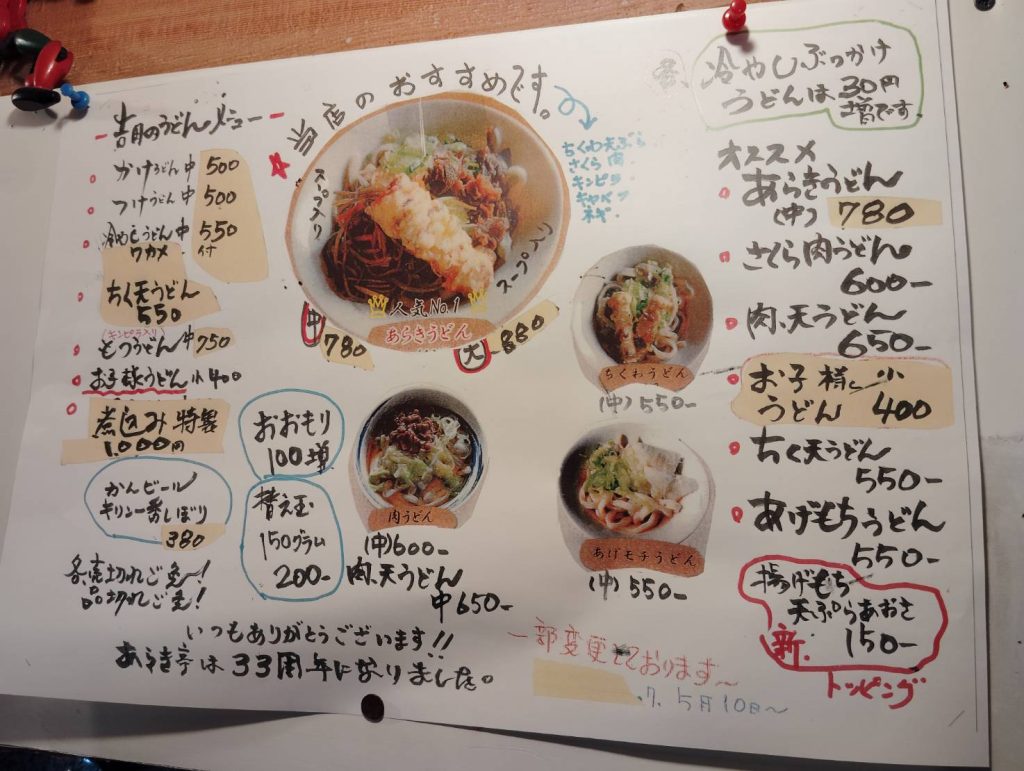 吉月のうどんメニュー
かけうどん中 500
つけうどん中 500
冷やしうどん中 550
ワカメ 付
ちく天うどん
550
(キンピラ入り)
もつうどん中 750
お子様うどん小400
煮込み特製
1,000円
かんビール
キリン一番しぼり
380
売切れご免〜!
品切れご免!
おおもり
100増
替え玉
150グラム
200-
当店のおすすめです。
スープ入り
スープ入り
人気No.1
あらきうどん
中 780
大 880
ちくわ天ぷら
さくら肉
キンピラ
キャベツ
ネギ
肉うどん
(中)600-
肉、天うどん
中650-
ちくわうどん
(中)550-
あげモチうどん
(中)550-
冷やしぶっかけ
うどんは30円
増です
オススメ
あらきうどん
(中) 780
さくら肉うどん
600-
肉、天うどん
650-
お子様 小
うどん 400
ちく天うどん
550-
あげもちうどん
550-
揚げもち
天ぷらあおさ
新. 150-
トッピング
いつもありがとうございます!!
あらき亭は33周年になりました。
一部変更しております〜
7. 5月10日〜